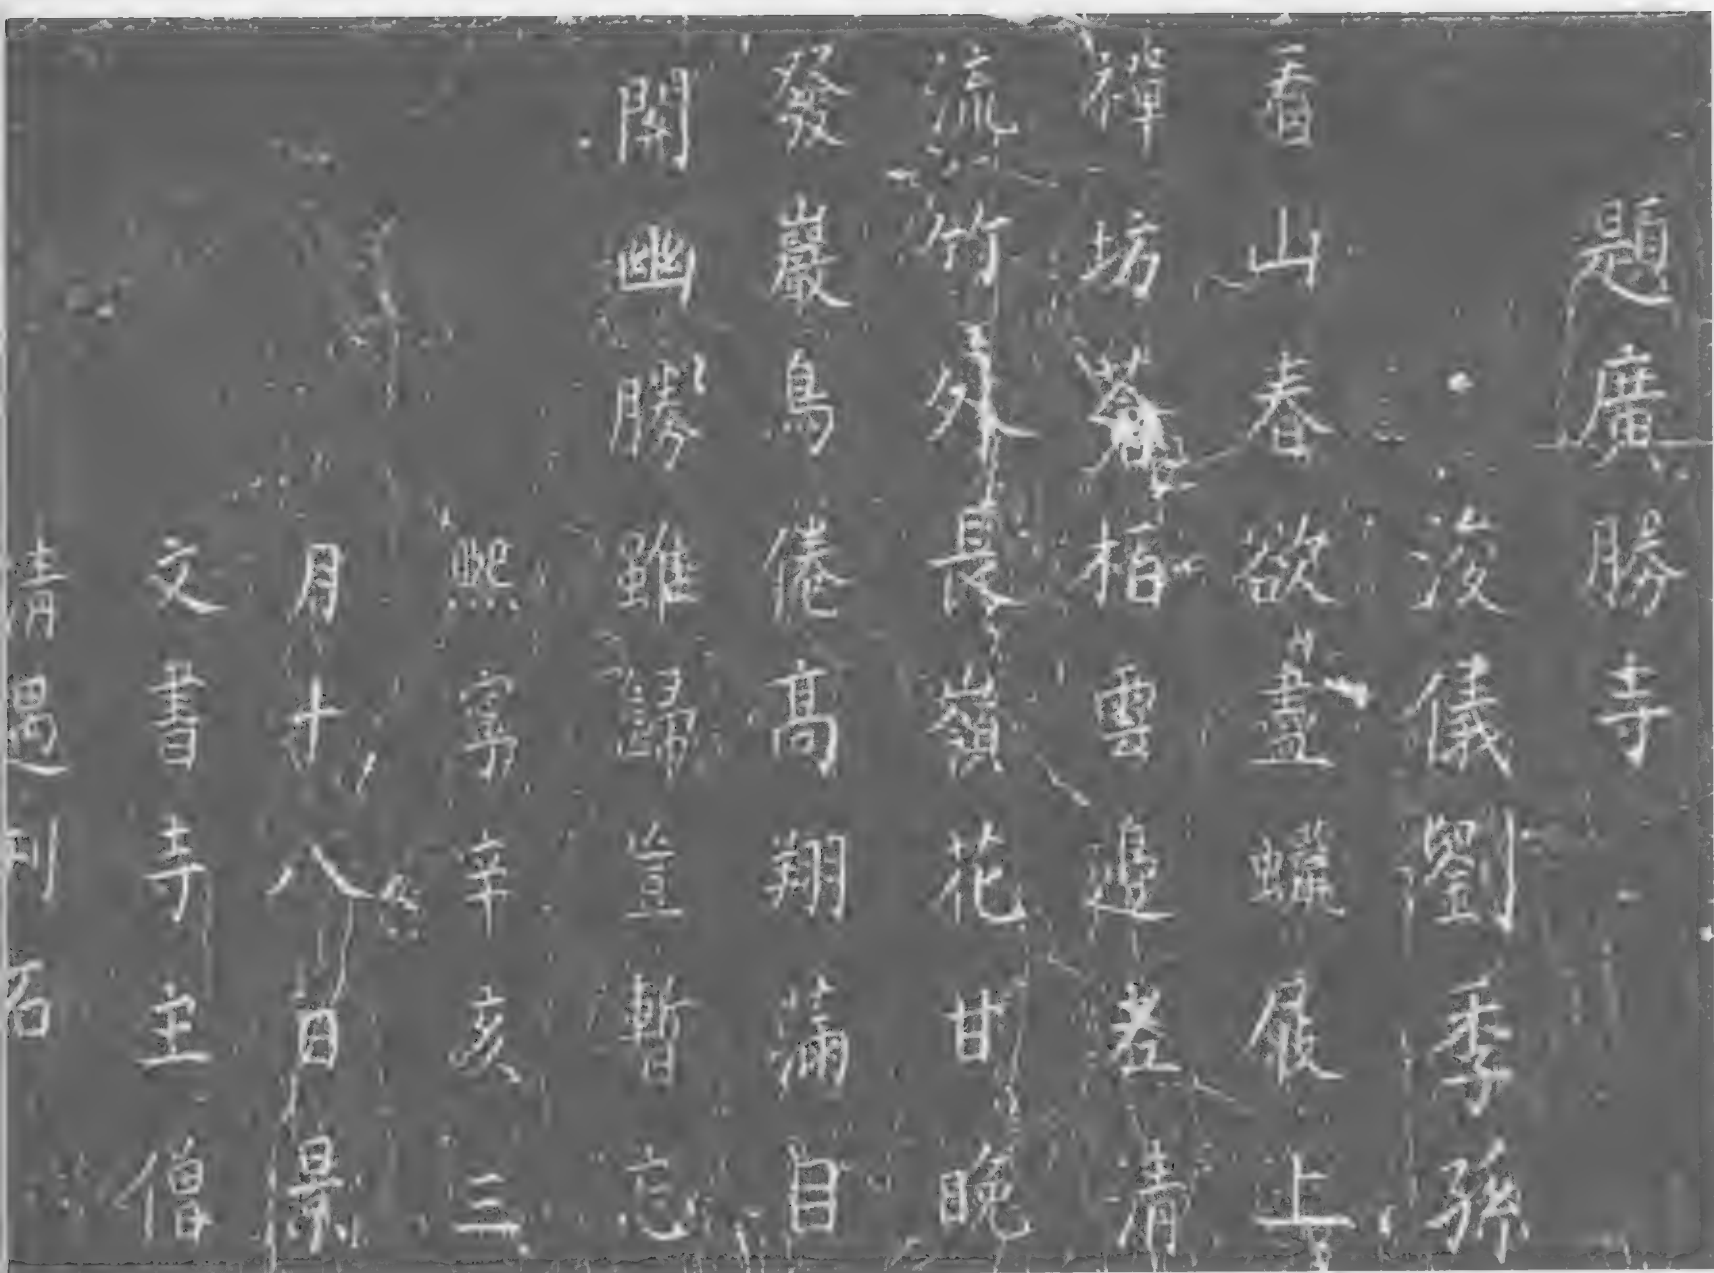 題廣勝寺
浚儀劉季孫
看山春欲盡蠟屐上
禪坊蒼栢雲邊老清
流竹外長嶺花甘晚
發巖鳥倦高翔滿目
開幽勝雖歸豈暫忘
熙寧辛亥三
月十八日景
文書寺主僧
清遇刊石